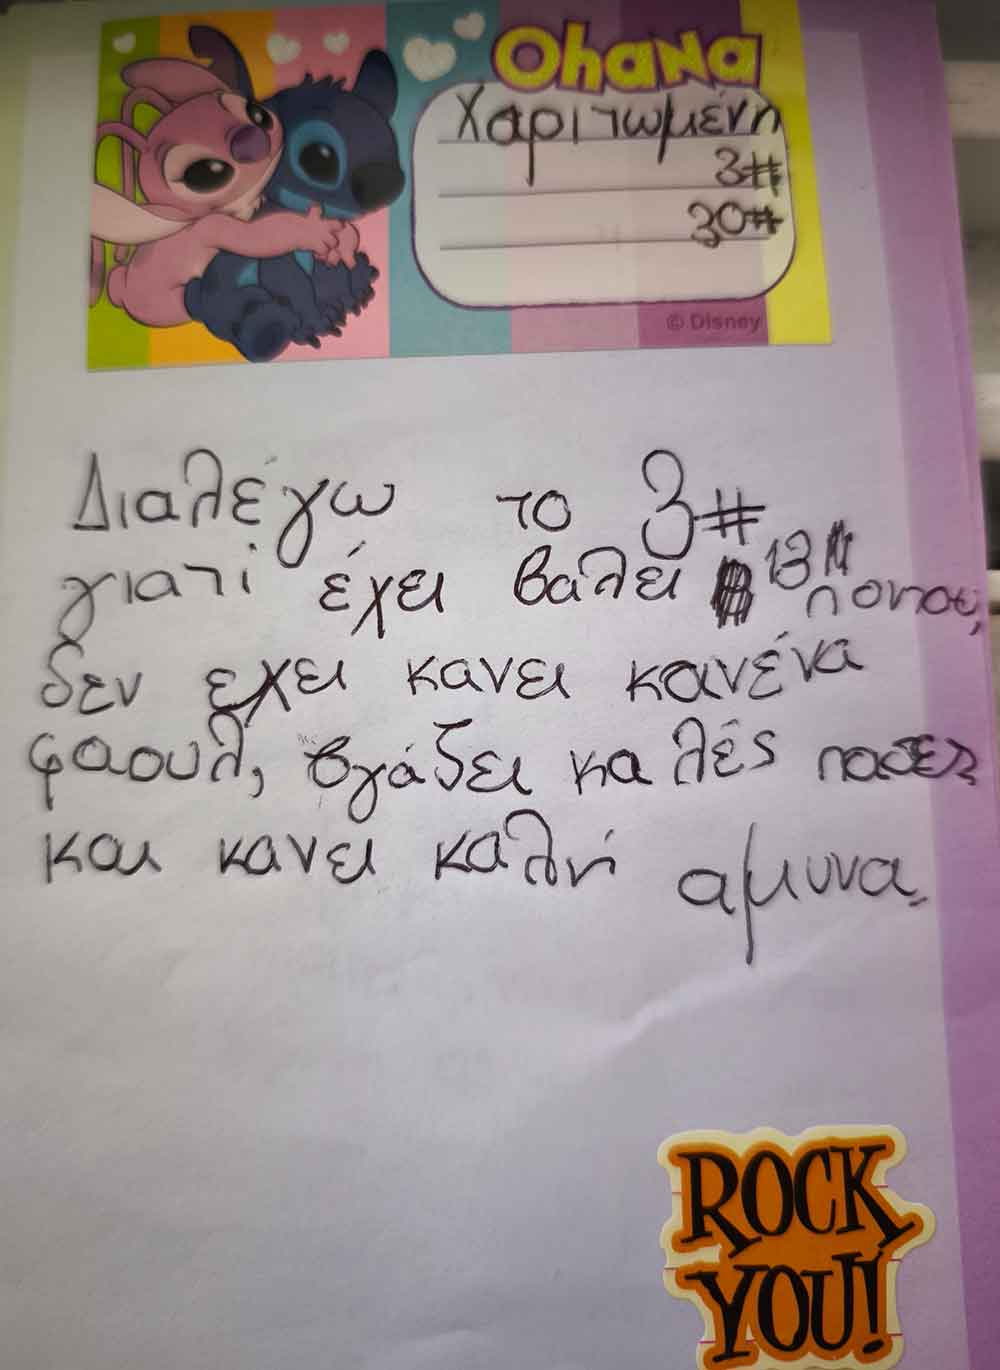 Ohana
Χαριτωμένη
3#
30#
© Disney
Διαλέγω το 3#
γιατί έχει βαλει 13 ποντους,
δεν εχει κανει κανένα
φαουλ, βγάζει καλές πασες
και κανει καλή αμυνα.
ROCK
YOU!